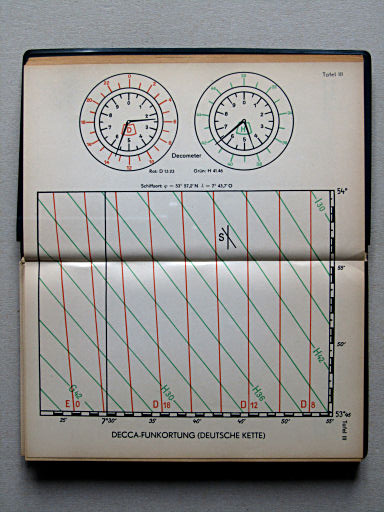 Tafel III
D
H
Decometer
Rot: D 12.23
Grün: H 41.46
Schiffsort φ = 53° 57,2' N λ = 7° 43,7' O
54°
I 30
S
55'
50'
H 42
G 42
H 30
H 36
E 0
D 18
D 12
D 6
53°45
25'
7°30'
35'
40'
45'
50'
55'
DECCA-FUNKORTUNG (DEUTSCHE KETTE)
Tafel III